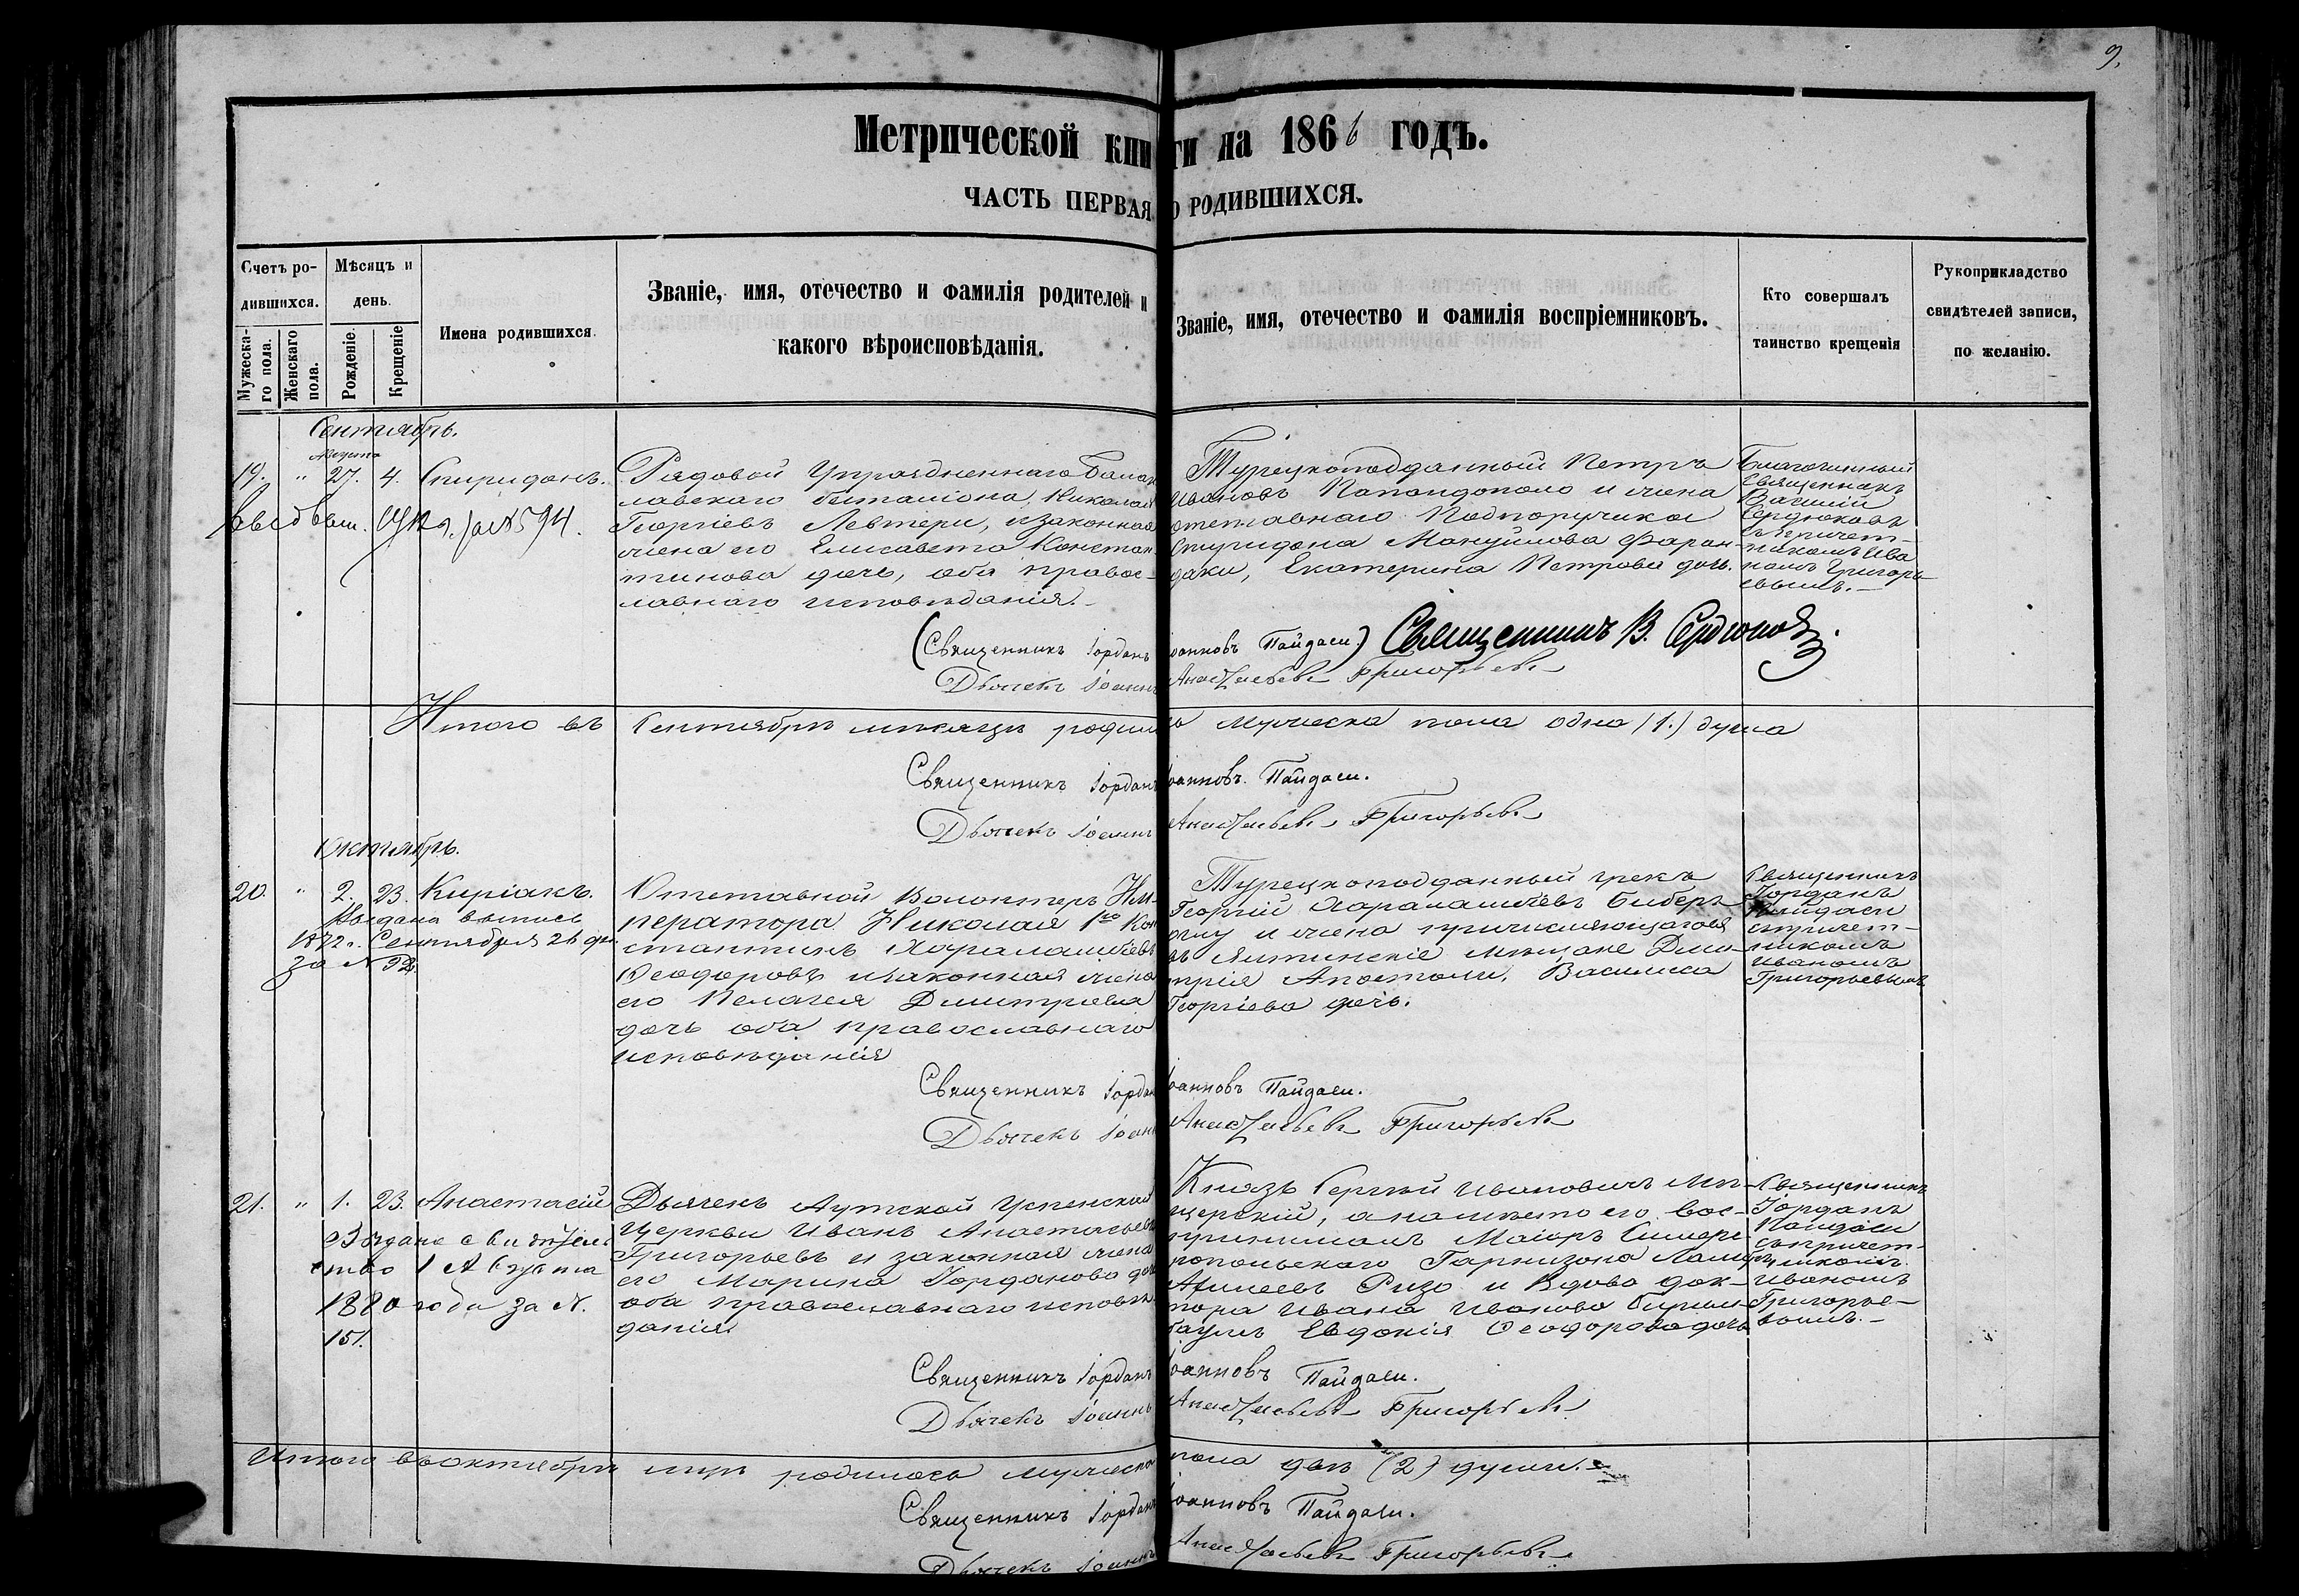 9.
Метрической книги на 1866 годъ.
ЧАСТЬ ПЕРВАЯ О РОДИВШИХСЯ.
Счетъ родившихся.
Мужескаго пола.
Женскаго пола.
Мѣсяцъ и день.
Рожденіе.
Крещеніе
Имена родившихся.
Званіе, имя, отечество и фамилія родителей и
какого вѣроисповѣданія.
Званіе, имя, отечество и фамилія воспріемниковъ.
Кто совершалъ
таинство крещенія
Рукоприкладство
свидѣтелей записи,
по желанію.
Сентябрь.
Августа
19. " 27. 4. Спиридонъ.
за №594.
Рядовой Упраздненнаго Балак
лавскаго баталіона, Николай
Георгіевъ Левтери, и законная
жена его Елисавета Констан
тинова дочь, оба правос-
лавнаго исповѣданія.
Турецкоподданный Петръ
Ивановъ Попандополо и жена
отставнаго Подпоручика
Спиридона Мануйлова Фаран-
даки, Екатерина Петрова дочь.
Благочинный
Священникъ
Василій
Сердюковъ
съ причет-
никомъ Ива
номъ Григорь
евымъ.
(Священникъ Іорданъ Іоанновъ Пайдаси) Священникъ В. Сердюковъ.
Дьячекъ Іоаннъ Анастасьевъ Григорьевъ
Итого въ Сентябрѣ мѣсяцѣ родилось мужеска пола одна (1.) душа
Священникъ Іорданъ Іоанновъ Пайдаси.
Дьячекъ Іоаннъ Анастасьевъ Григорьевъ
Октябрь.
20. " 2. 23. Киріакъ.
Выдана выпись
1872 г. Сентября 26 дн.
за № 92.
Отставной Волонтеръ Им-
ператора Николая 1го Кон
стантинъ Харалампіевъ
Ѳеодоровъ и законная жена
его Пелагея Димитріева
дочь оба православнаго
исповѣданія
Турецкоподданный грекъ
Георгій Харалампіевъ
и жена причисляющагося
въ Ялтинскіе мѣщане Дми-
трія Апостоли, Василиса
Георгіева дочь.
Священникъ
Іорданъ
Пайдаси
съ причет-
никомъ
Иваномъ
Григорьевымъ
Священникъ Іорданъ Іоанновъ Пайдаси.
Дьячекъ Іоаннъ Анастасьевъ Григорьевъ
21. " 1. 23. Анастасій
Выдано свидѣтель
ство 1 Августа
1880 года за №.
151.
Дьячекъ Аутской Успенской
Церкви Иванъ Анастасьевъ
Григорьевъ и законная жена
его Марина Іорданова дочь
оба православнаго исповѣ-
данія.
Князь Сергѣй Ивановичъ Ме-
щерскій, а намѣсто его вос-
принималъ Маіоръ Симфе
ропольскаго Гарнизона
Ризо и Вдова док-
тора Ивана Иванова
Евдокія Ѳеодорова дочь
Священникъ
Іорданъ
Пайдаси
съ причет-
никомъ
Иваномъ
Григорье-
вымъ.
Священникъ Іорданъ Іоанновъ Пайдаси.
Дьячекъ Іоаннъ Анастасьевъ Григорьевъ
Итого въ октябрѣ мцѣ родилось мужеска пола двѣ (2) души.
Священникъ Іорданъ Іоанновъ Пайдаси.
Дьячекъ Іоаннъ Анастасьевъ Григорьевъ